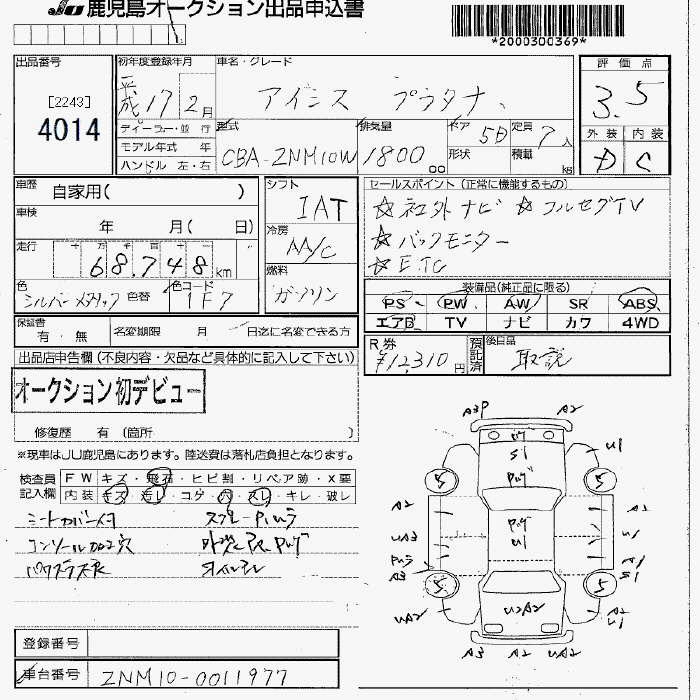 JU 鹿児島オークション出品申込書
*2000300369*
出品番号
[2243]
4014
初年度登録年月
平成 17 2月
車名・グレード
アイシス プラタナ
評価点
3.5
外装 内装
D C
ディーラー・並 行
モデル年式 年
ハンドル 左・右
型式
CBA-ZNM10W
排気量
1800 cc
ドア
5D
形状
定員
7人
積載
kg
車歴
自家用( )
車検
年 月( 日)
走行
十 万 千 百 十 一
68.748 km
色
シルバーメタリック
色替
色コード
1F7
シフト
IAT
冷房
A/C
燃料
ガソリン
セールスポイント(正常に機能するもの)
☆社外ナビ ☆フルセグTV
☆バックモニター
☆ETC
装備品(純正品に限る)
PS PW AW SR ABS
エアB TV ナビ カワ 4WD
保証書
有・無
名変期限 月 日迄に名変できる方
R券
¥12,310円
預託済
後日品
取説
出品店申告欄(不良内容・欠品など具体的に記入して下さい)
オークション初デビュー
修復歴 有(箇所 )
※現車はJU鹿児島にあります。陸送費は落札店負担となります。
検査員記入欄
FW キズ・飛石・ヒビ割・リペア跡・X要
内装 キズ・汚レ・コゲ・穴・スレ・キレ・破レ
シートカバー付
コンソール加工穴
登録番号
車台番号
ZNM10-0011977
A3P A2
S1
U1
5 5
A2 A2
U1
A3
5 5
UA2
U2A2
A2
U1
A3 A2 UA2